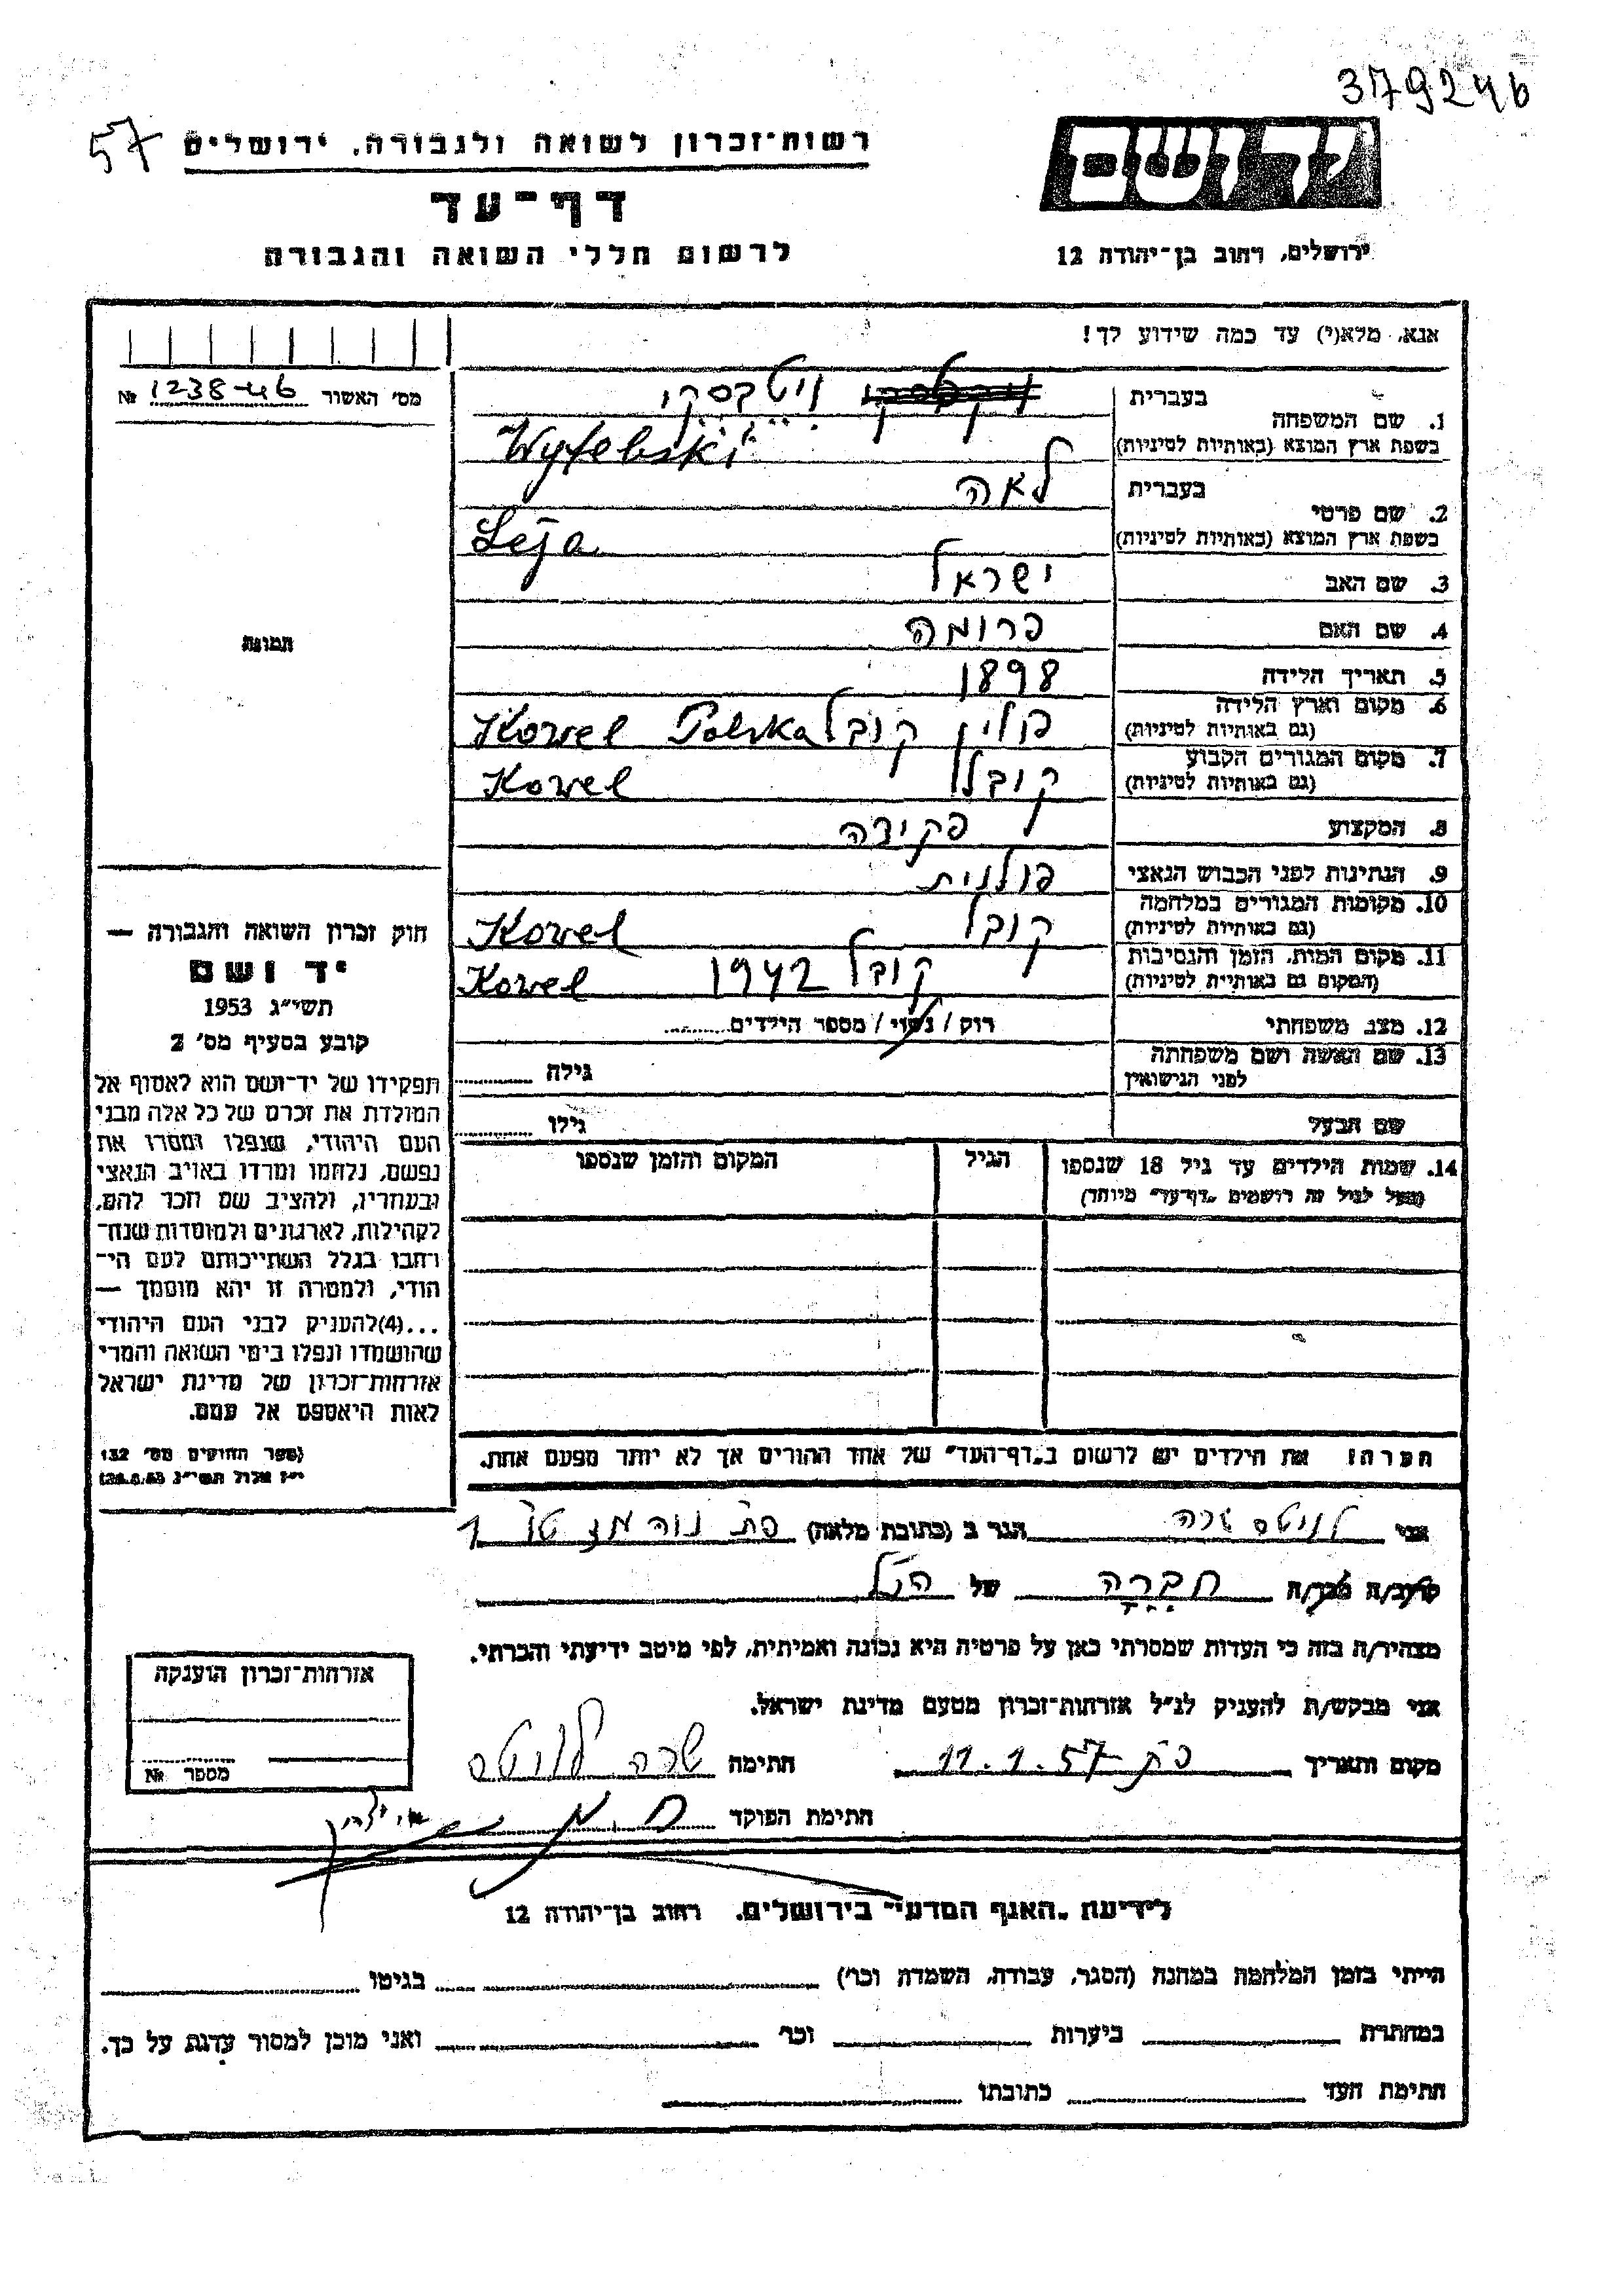 379246
57
רשות־זכרון לשואה ולגבורה, ירושלים
יד ושם
דף־עד
לרשום חללי השואה והגבורה
ירושלים, רחוב בן־יהודה 12
אנא, מלא(י) עד כמה שידוע לך!
מס' האשור 1238-46 №
1. שם המשפחה
בעברית ויטבסקי
בשפת ארץ המוצא (באותיות לטיניות) Wytebski
2. שם פרטי
בעברית לאה
בשפת ארץ המוצא (באותיות לטיניות) Leja
3. שם האב ישראל
4. שם האם פרומה
5. תאריך הלידה 1898
6. מקום וארץ הלידה (גם באותיות לטיניות) פולין קובל Kowel Polska
7. מקום המגורים הקבוע (גם באותיות לטיניות) קובל Kowel
8. המקצוע פקידה
9. הנתינות לפני הכבוש הנאצי פולנית
10. מקומות המגורים במלחמה (גם באותיות לטיניות) קובל Kowel
11. מקום המות, הזמן והנסיבות (המקום גם באותיות לטיניות) קובל 1942 Kowel
12. מצב משפחתי רוק / נשוי / מספר הילדים
13. שם האשה ושם משפחתה לפני הנישואין גילה
שם הבעל גילו
14. שמות הילדים עד גיל 18 שנספו
(מעל לגיל זה רושמים „דף־עד" מיוחד)
הגיל
המקום והזמן שנספו
תמונה
חוק זכרון השואה והגבורה —
יד ושם
תשי"ג 1953
קובע בסעיף מס' 2
תפקידו של יד־ושם הוא לאסוף אל
המולדת את זכרם של כל אלה מבני
העם היהודי, שנפלו ומסרו את
נפשם, נלחמו ומרדו באויב הנאצי
ובעוזריו, ולהציב שם וזכר להם,
לקהילות, לארגונים ולמוסדות שנח־
רבו בגלל השתייכותם לעם הי־
הודי, ולמטרה זו יהא מוסמך —
...(4) להעניק לבני העם היהודי
שהושמדו ונפלו בימי השואה והמרי
אזרחות־זכרון של מדינת ישראל
לאות היאספם אל עמם.
(ספר החוקים מס' 132
י"ז אלול תשי"ג 28.8.53)
הערה! את הילדים יש לרשום ב„דף־העד" של אחד ההורים אך לא יותר מפעם אחת.
אני לויטס שרה הגר ב (כתובת מלאה)
קרוב/ה מכר/ה חברה של הנ"ל
מצהיר/ה בזה כי העדות שמסרתי כאן על פרטיה היא נכונה ואמיתית, לפי מיטב ידיעתי והכרתי.
אני מבקש/ת להעניק לנ"ל אזרחות־זכרון מטעם מדינת ישראל.
מקום ותאריך פ"ת 11.1.57 חתימה שרה לויטס
חתימת הפוקד
אזרחות־זכרון הוענקה
מספר №
לידיעת „האגף המדעי" בירושלים, רחוב בן־יהודה 12
הייתי בזמן המלחמה במחנה (הסגר, עבודה, השמדה וכו') בגיטו
במחתרת ביערות וכו' ואני מוכן למסור עדות על כך.
חתימת העד כתובתו